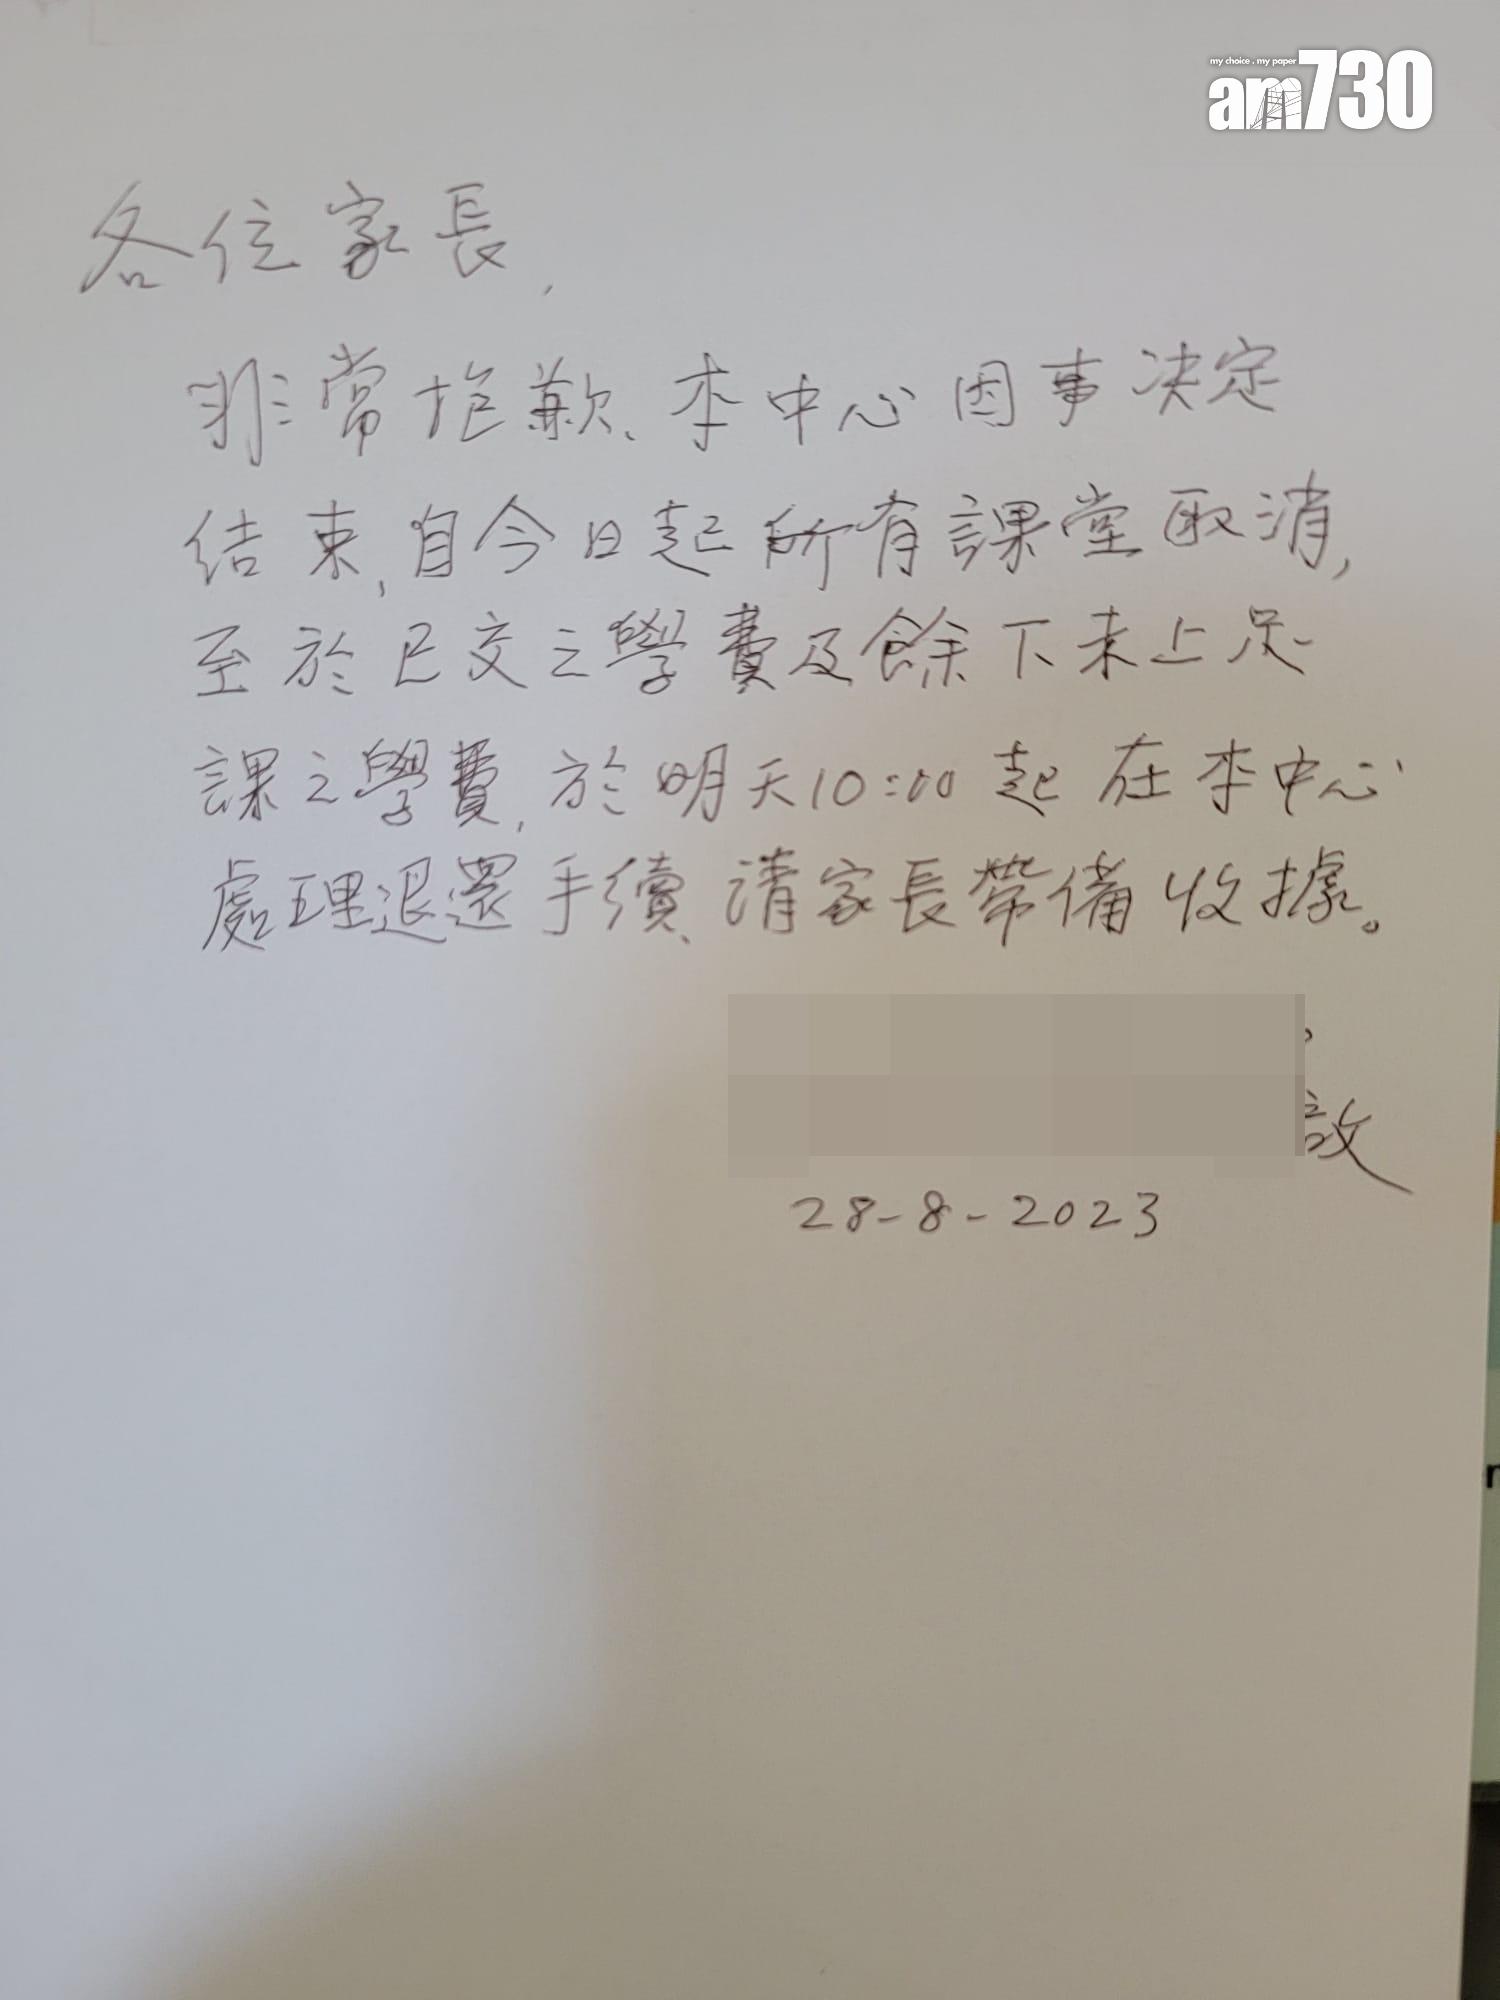 my choice . my paper
am730
各位家長,
非常抱歉、本中心因事決定
結束,自今日起所有課堂取消,
至於已交之學費及餘下未上足
課之學費,於明天10:00起在本中心
處理退還手續、請家長帶備收據。
啟
28-8-2023